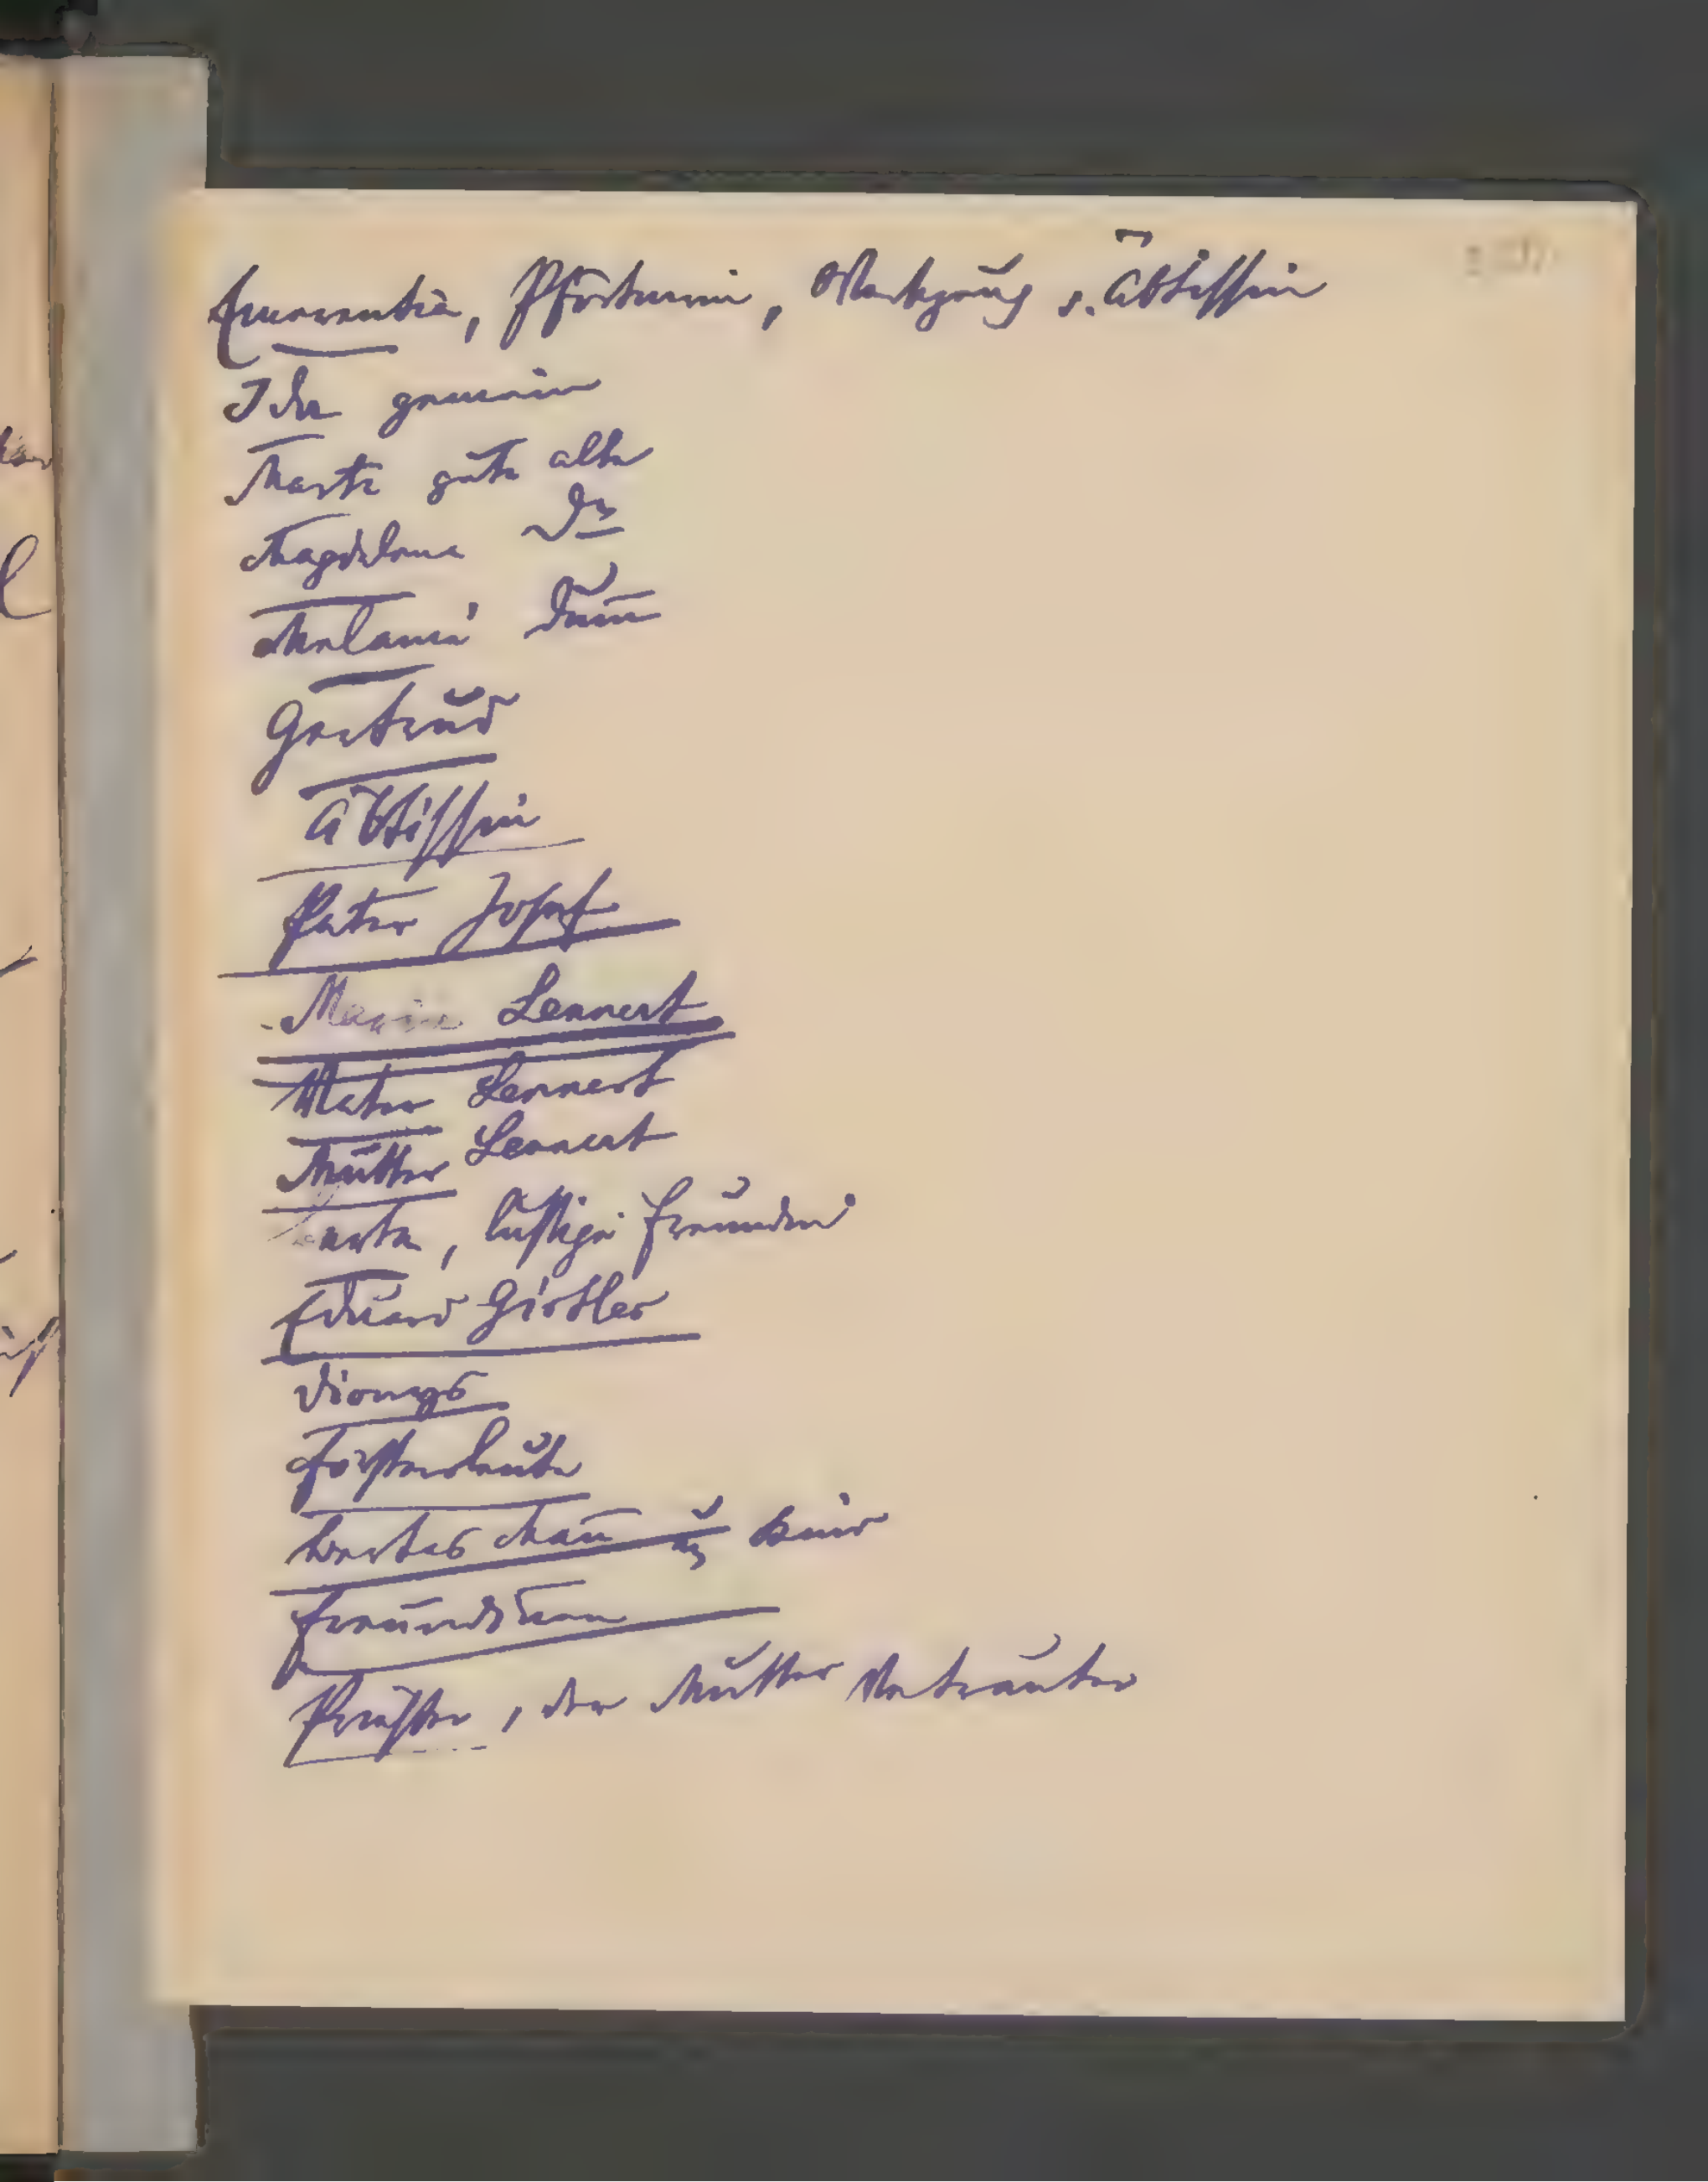 Emerentia, Pförtnerin, Werkzeug d. Äbtissin
Ida gemein
Marta gute alte
Magdalena do
Melanie dum̄
Gertrud
Äbtissin
Pater Josef
Maria Lennert
Vater Lennert
Mutter Lennert
Berta, lustige Freundin
Eduard Girtler
Dionys
Försterleute
Bertas Man̄ u Kind
Freundinen
Priester, der Mutter Vertrauter